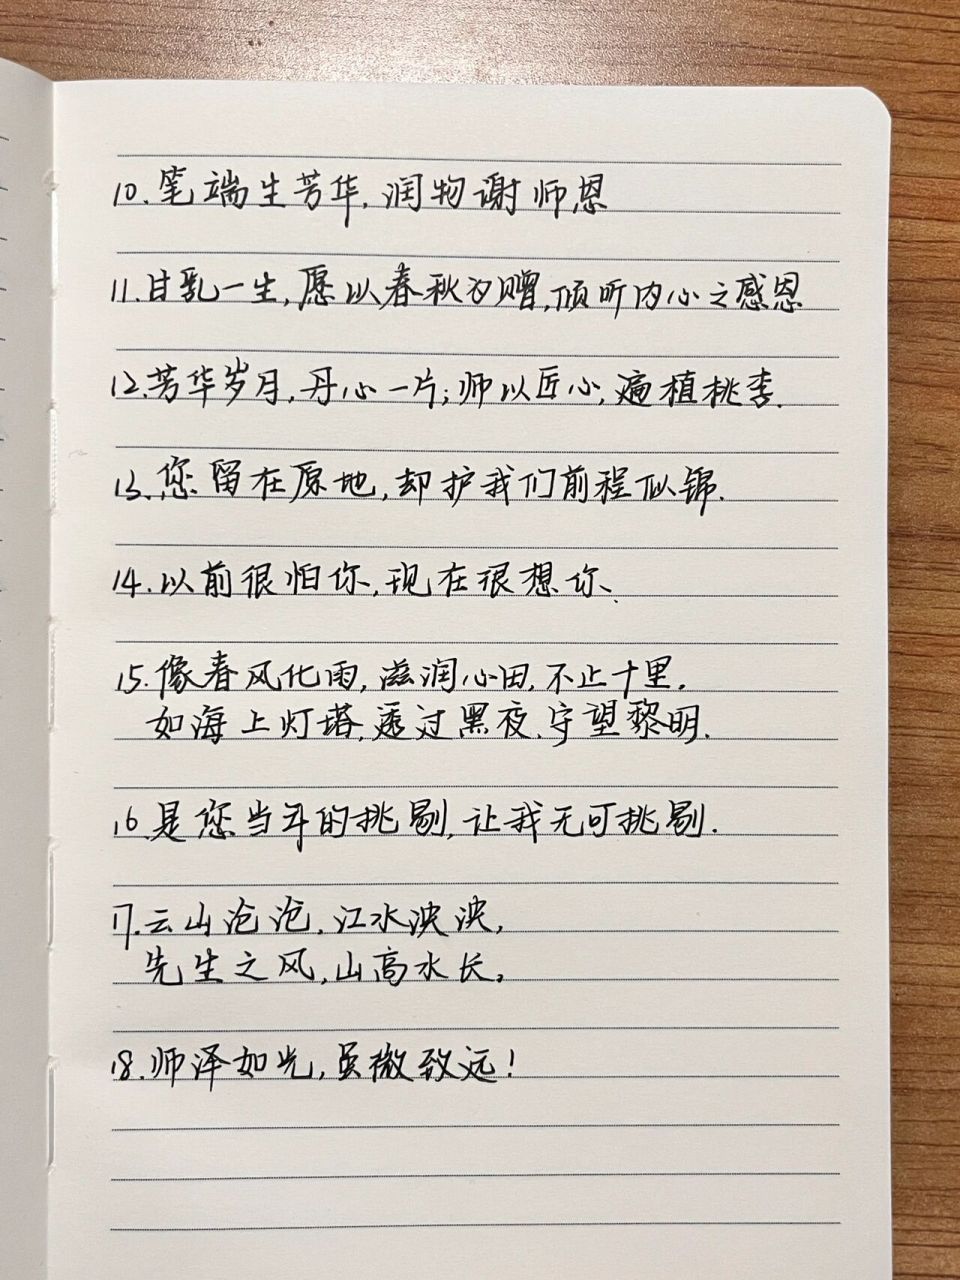 10.笔端生芳华,润物谢师恩
11.甘乳一生,愿以春秋为赠,倾听内心之感恩
12.芳华岁月,丹心一片;师以匠心,遍植桃李.
13.您留在原地,却护我们前程似锦.
14.以前很怕你,现在很想你、
15.像春风化雨,滋润心田,不止十里.
如海上灯塔,透过黑夜,守望黎明.
16.是您当年的挑剔,让我无可挑剔.
17.云山沧沧,江水泱泱,
先生之风,山高水长,
18.师泽如光,虽微致远!